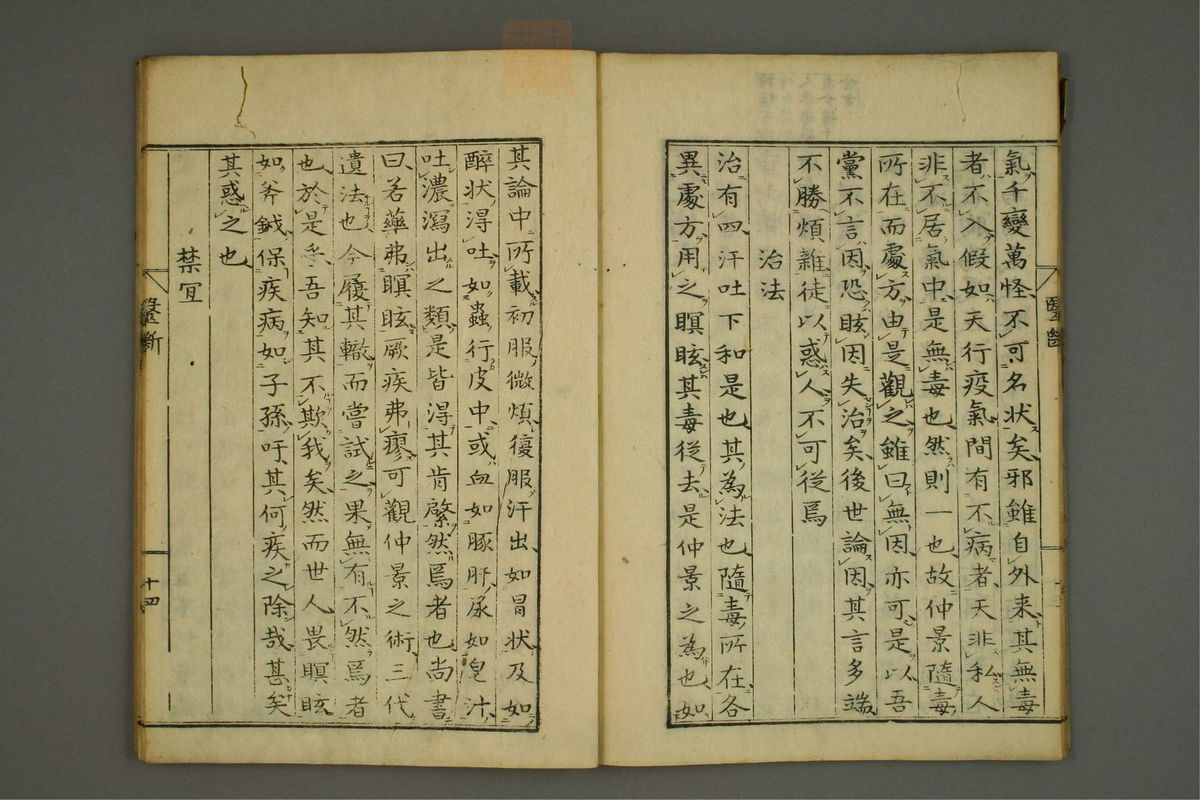 氣千變萬怪不可名狀矣邪雖自外来其無毒
者不入假如天行疫氣間有不病者天非私人
非不居氣中是無毒也然則一也故仲景隨毒
所在而處方由是觀之雖曰無因亦可是以吾
黨不言因恐眩因失治矣後世論因其言多端
不勝煩雜徒以惑人不可從焉
治法
治有四汗吐下和是也其為法也隨毒所在各
異處方用之瞑眩其毒從去是仲景之為也如
其論中所載初服微煩復服汗出如冒狀及如
醉狀淂吐如蟲行皮中或血如豚肝尿如皂汁
吐濃瀉出之類是皆淂其肯綮然焉者也尚書
曰若藥弗瞑眩厥疾弗瘳可觀仲景之術三代
遺法也今履其轍而嘗試之果無有不然焉者
也於是乎吾知其不欺我矣然而世人畏瞑眩
如斧鉞保疾病如子孫吁其何疾之除哉甚矣
其惑之也
禁冝
醫斷
十四